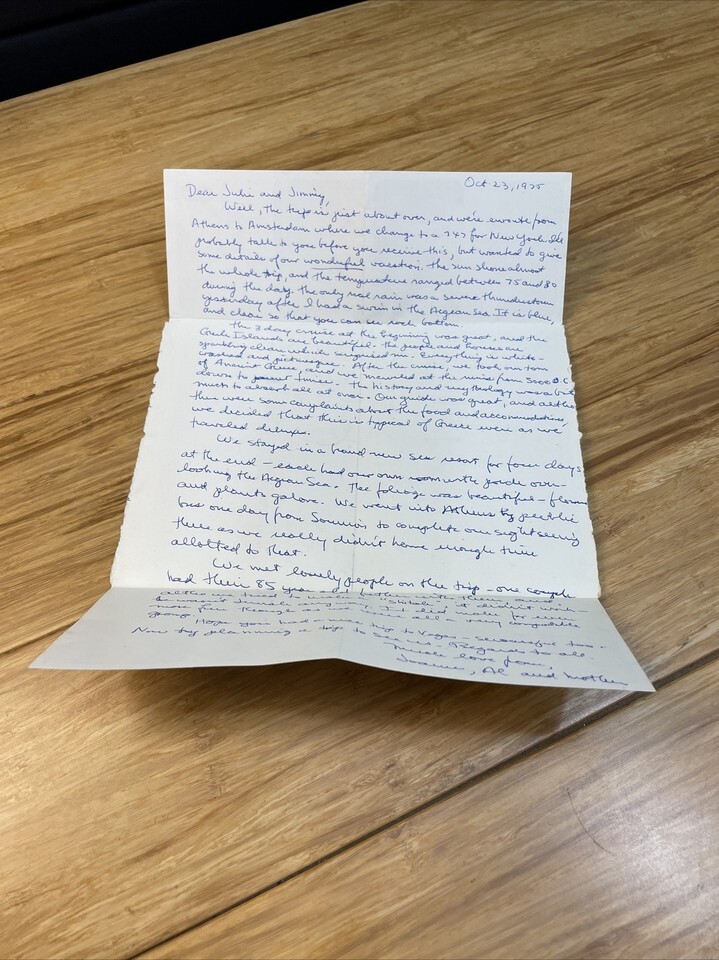 Oct 23, 1975
Dear Julie and Jimmy,
Well, the trip is just about over, and we're enroute from
Athens to Amsterdam where we change to a 747 for New York. I'll
probably talk to you before you receive this, but wanted to give
some details of our wonderful vacation. The sun shone almost
the whole trip, and the temperature ranged between 75 and 80
during the day. The only real rain was a severe thunderstorm
yesterday after I had a swim in the Aegean Sea. It is blue,
and clear so that you can see rock bottom.
The 3 day cruise at the beginning was great, and the
Greek Islands are beautiful - the people and homes are
sparkling clean which surprised me. Everything is white-
washed and picturesque. After the cruise, we took our tour
of Ancient Greece, and we marveled at the ruins from 5000 B.C.
down to our times. The history and mythology was a bit
much to absorb all at once. Our guide was great, and altho
there were some complaints about the food and accommodations,
we decided that this is typical of Greece even as we
traveled deluxe.
We stayed in a brand new sea resort for four days
at the end - each had our own room with porch over-
looking the Aegean Sea. The foliage was beautiful - flowers
and plants galore. We went into Athens by public
bus one day from Sounion to complete our sightseeing
there as we really didn't have enough time
allotted to that.
We met lovely people on the trip - one couple
had their 85 year
altho we tried to
more fun though as we all a very
group.
Hope you had a nice trip to Vegas - successful too.
Now try planning a trip to - Regards to all.
Much love from,
Joanne, Al and Mother